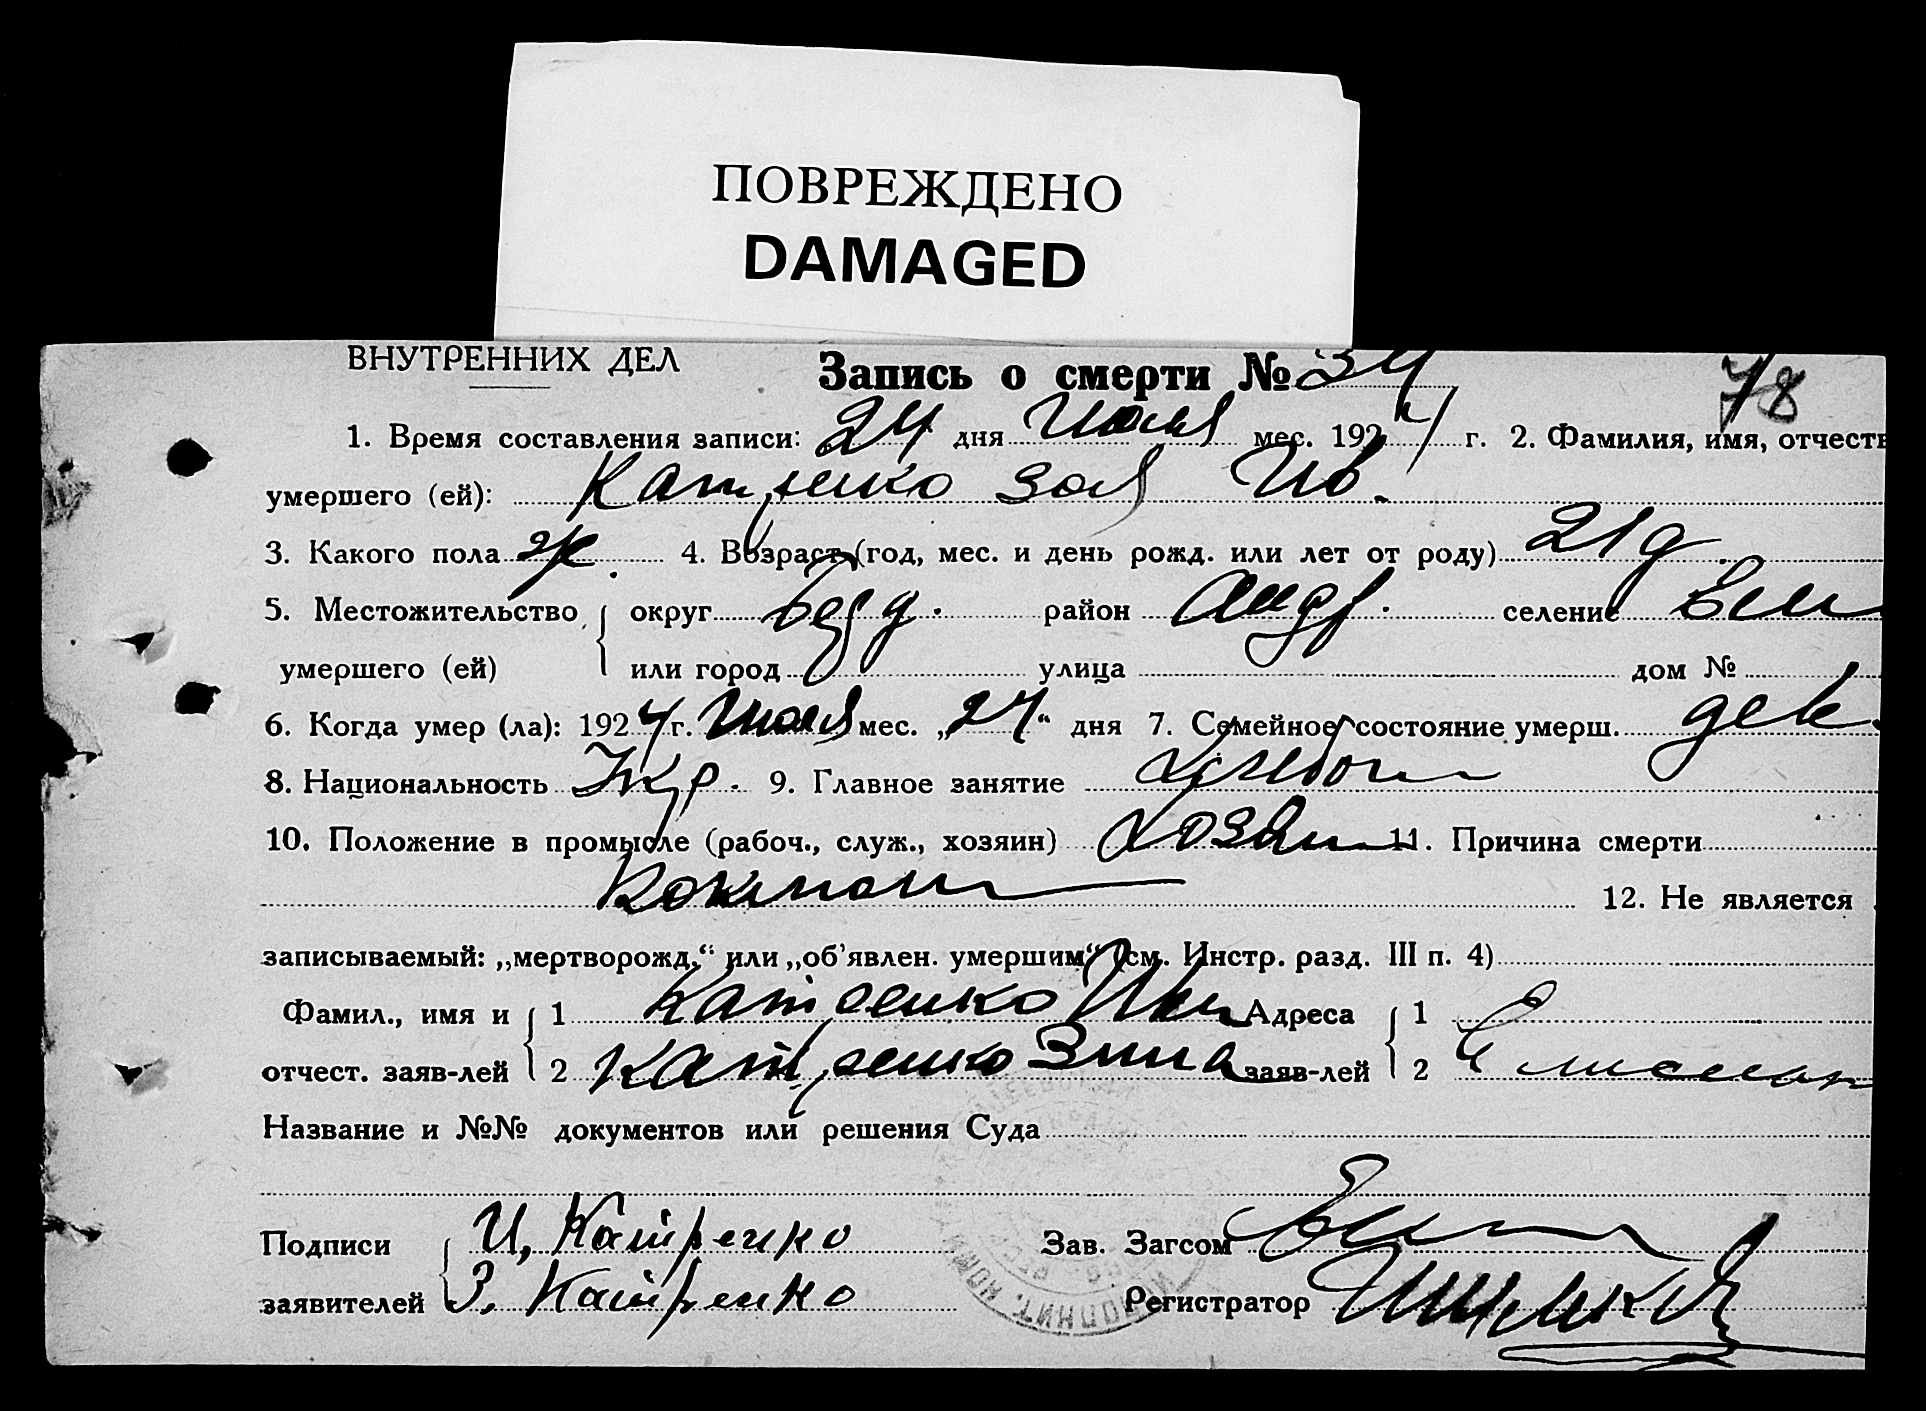 ПОВРЕЖДЕНО
DAMAGED
ВНУТРЕННИХ ДЕЛ
Запись о смерти № 34
78
1. Время составления записи: 24 дня Июля мес. 1924 г. 2. Фамилия, имя, отчеств
умершего (ей): Катренко Зоя Ив.
3. Какого пола ж. 4. Возраст (год, мес. и день рожд. или лет от роду) 21 д
5. Местожительство округ район Андр. селение
умершего (ей) или город улица дом №
6. Когда умер (ла): 1924 г. Июля мес. „24“ дня 7. Семейное состояние умерш. дев.
8. Национальность Укр. 9. Главное занятие
10. Положение в промысле (рабоч., служ., хозяин) Хозяин 11. Причина смерти
12. Не является
записываемый: „мертворожд.“ или „об’явлен. умершим“ (см. Инстр. разд. III п. 4)
Фамил., имя и 1 Катренко Адреса 1
отчест. заяв-лей 2 Катренко Зина заяв-лей 2
Название и №№ документов или решения Суда
Подписи И, Катренко Зав. Загсом
заявителей З. Катренко Регистратор